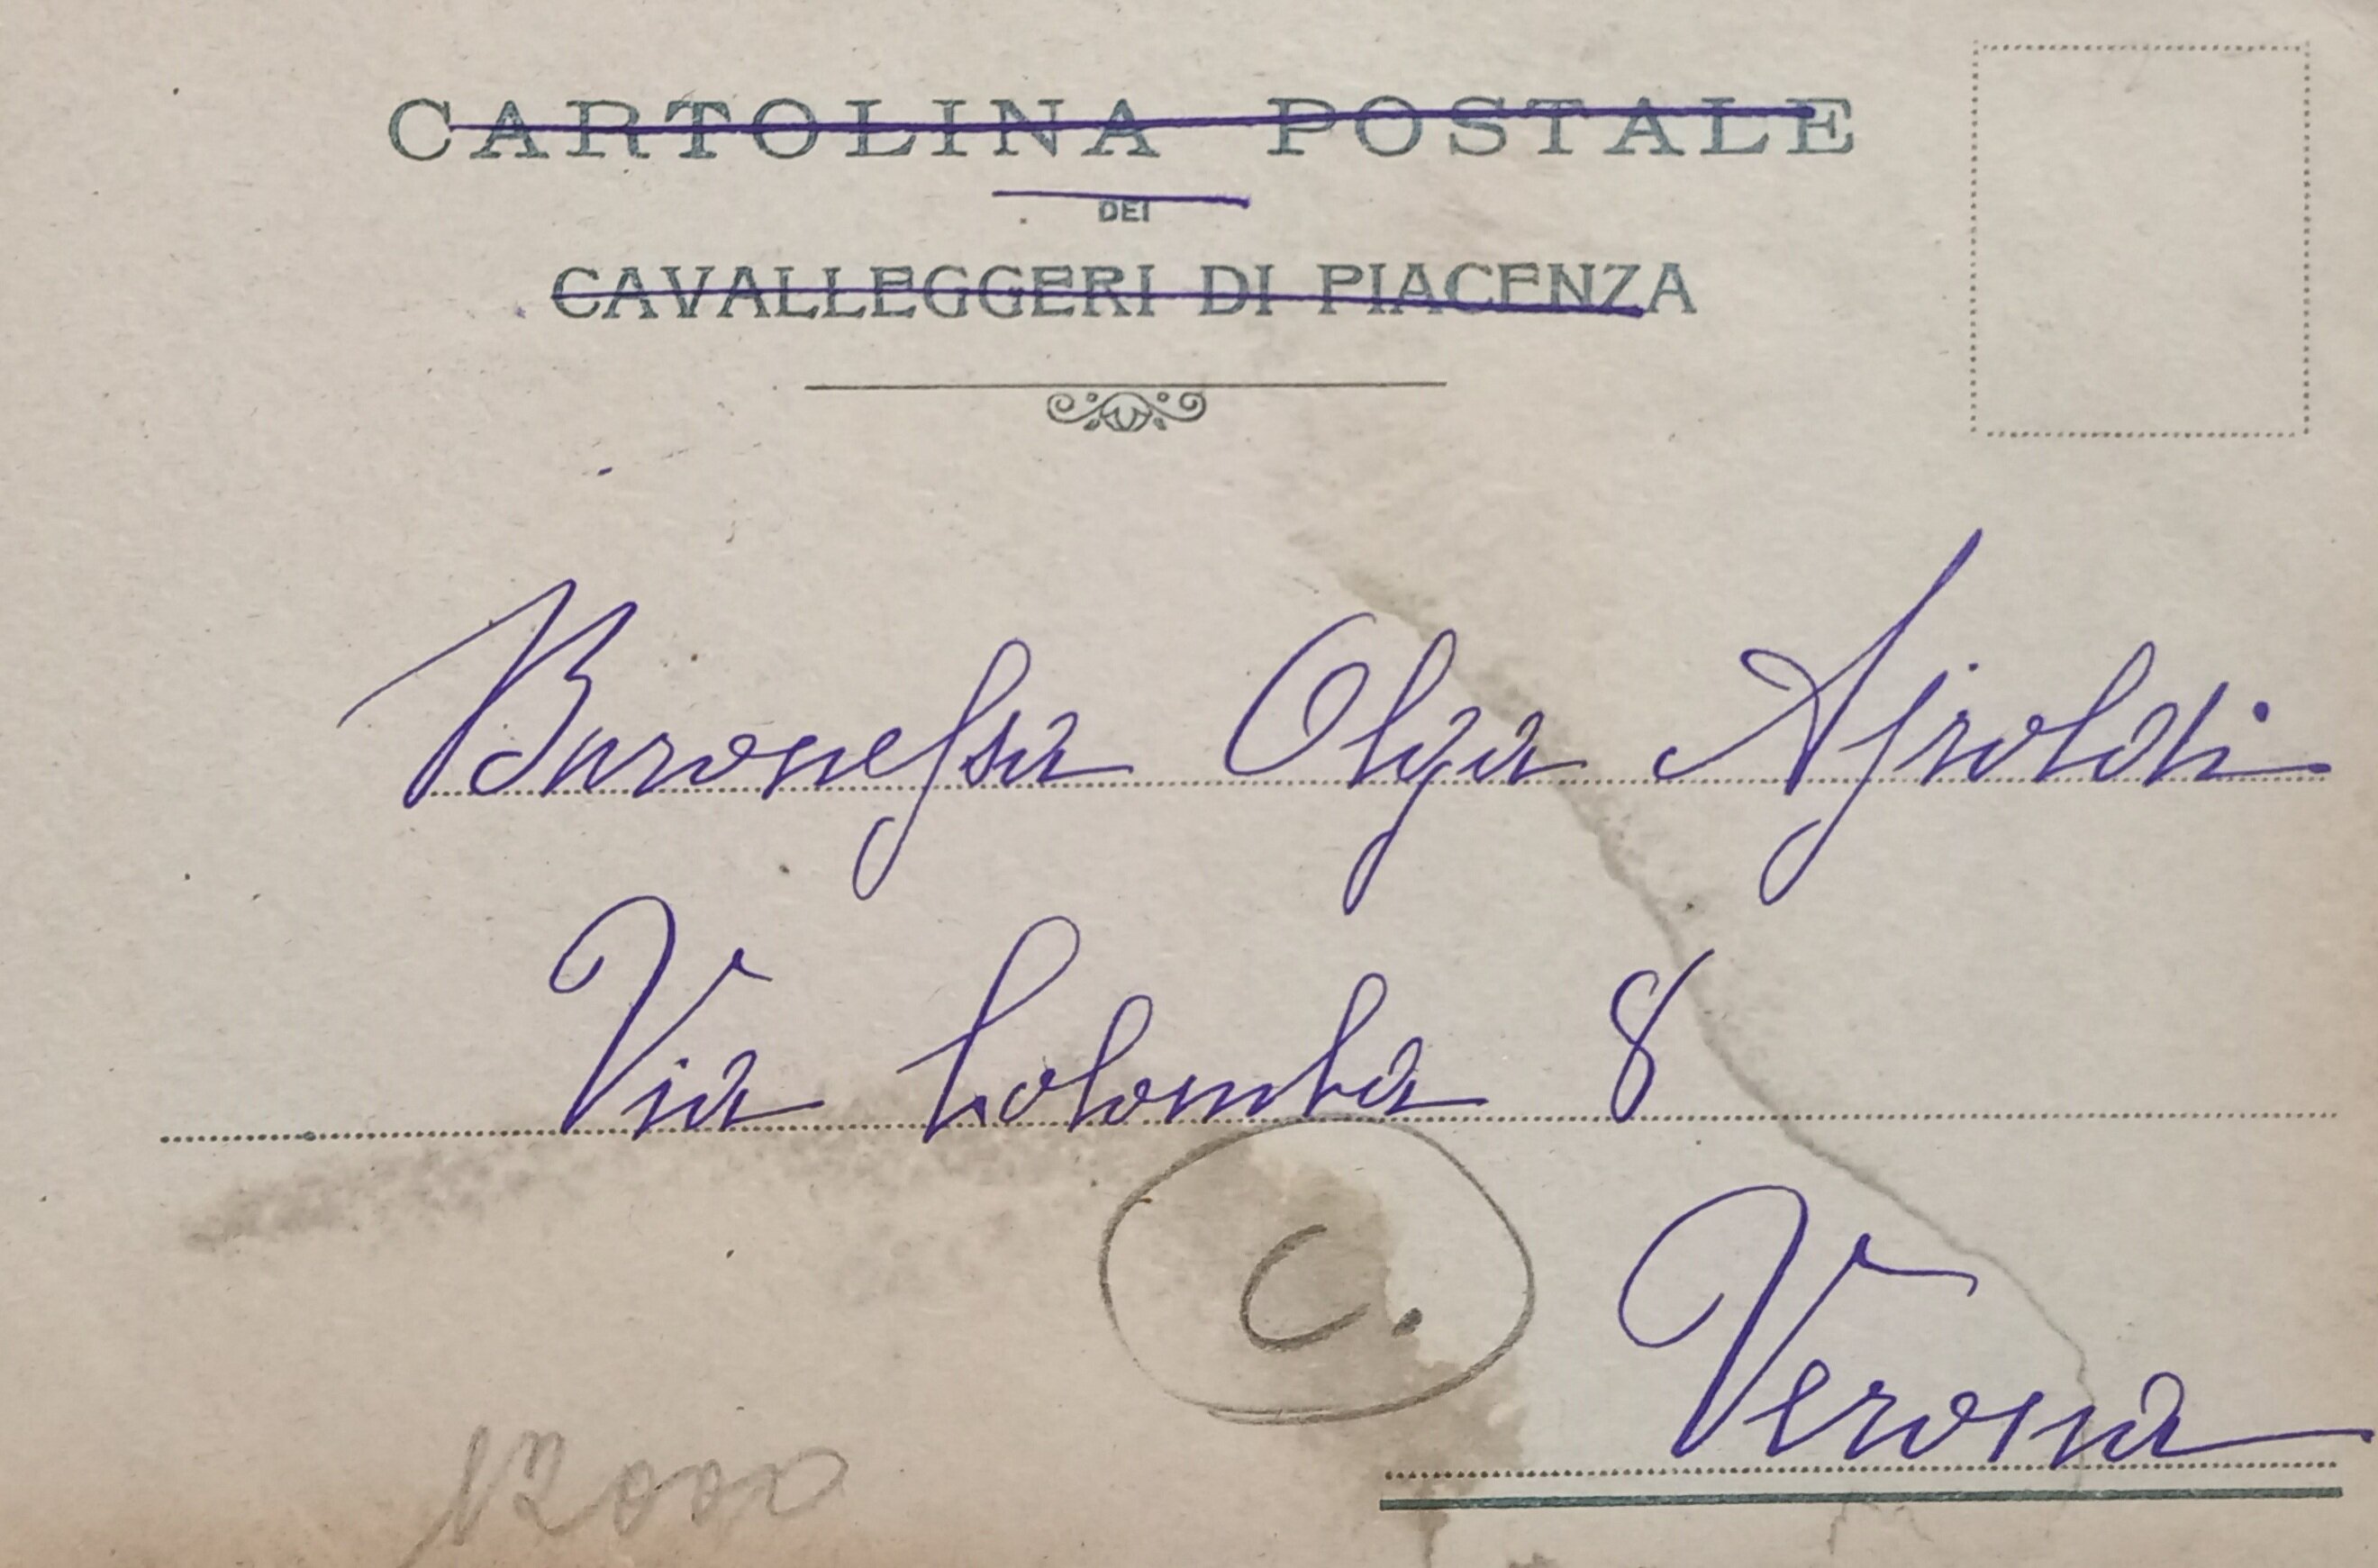 CARTOLINA POSTALE
DEI
CAVALLEGGERI DI PIACENZA
Baronessa Olga Ajroldi
Via Colomba 8
C.
Verona
12000